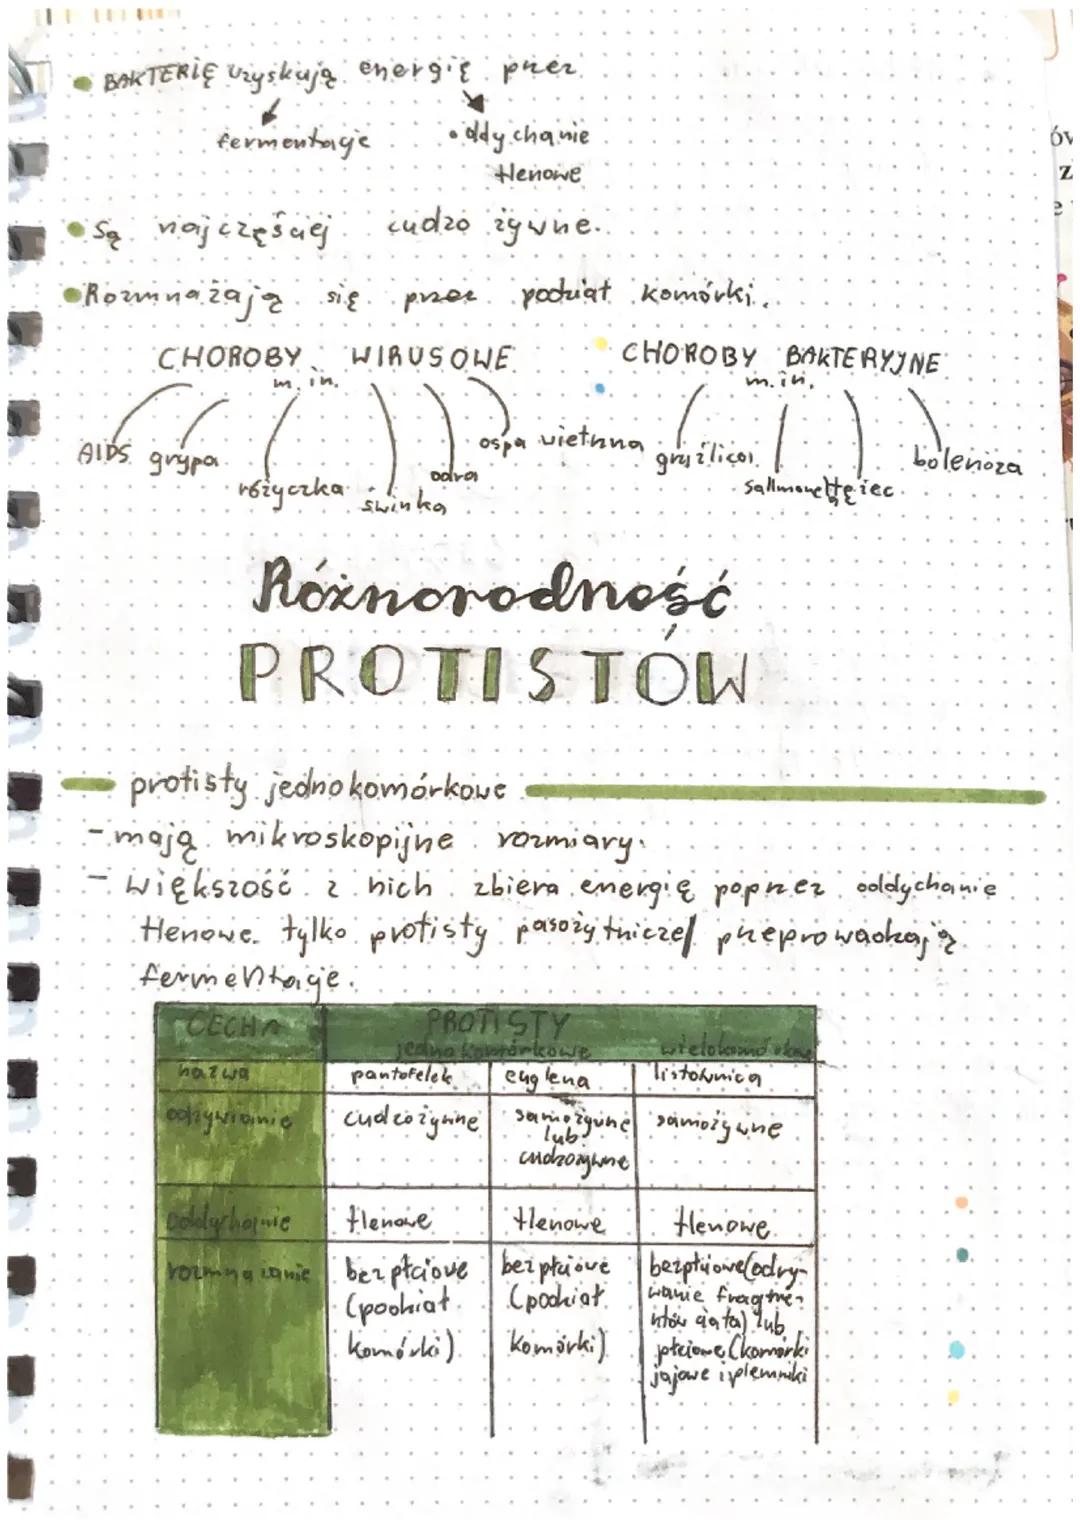 BAKTERIĘ uzyskują energię przez
fermentację
oddychanie
tlenowe
Są najczęściej cudzożywne.
Rozmnażają się przez podział komórki.
CHOROBY WIRUSOWE
m.in.
AIDS
grypa
różyczka
świnka
odra
ospa wietrzna
CHOROBY BAKTERYJNE
m.in.
gruźlica
sallmonella
tężec
bolerioza
Różnorodność
PROTISTÓW
protisty jednokomórkowe
- mają mikroskopijne rozmiary.
- większość z nich zbiera energię poprzez oddychanie
tlenowe. tylko protisty pasożytnicze przeprowadzają
fermentację.
CECHA PROTISTY
jednokomórkowe wielokomórkowe
nazwa pantofelek euglena listownica
odżywianie cudzożywne samożywne samożywne
lub
cudzożywne
oddychanie tlenowe tlenowe tlenowe
rozmnażanie bezpłciowe bezpłciowe bezpłciowe (odry-
(podział (podział wanie fragme-
komórki) komórki) ntów ciała) lub
płciowe (komórki
jajowe i plemniki